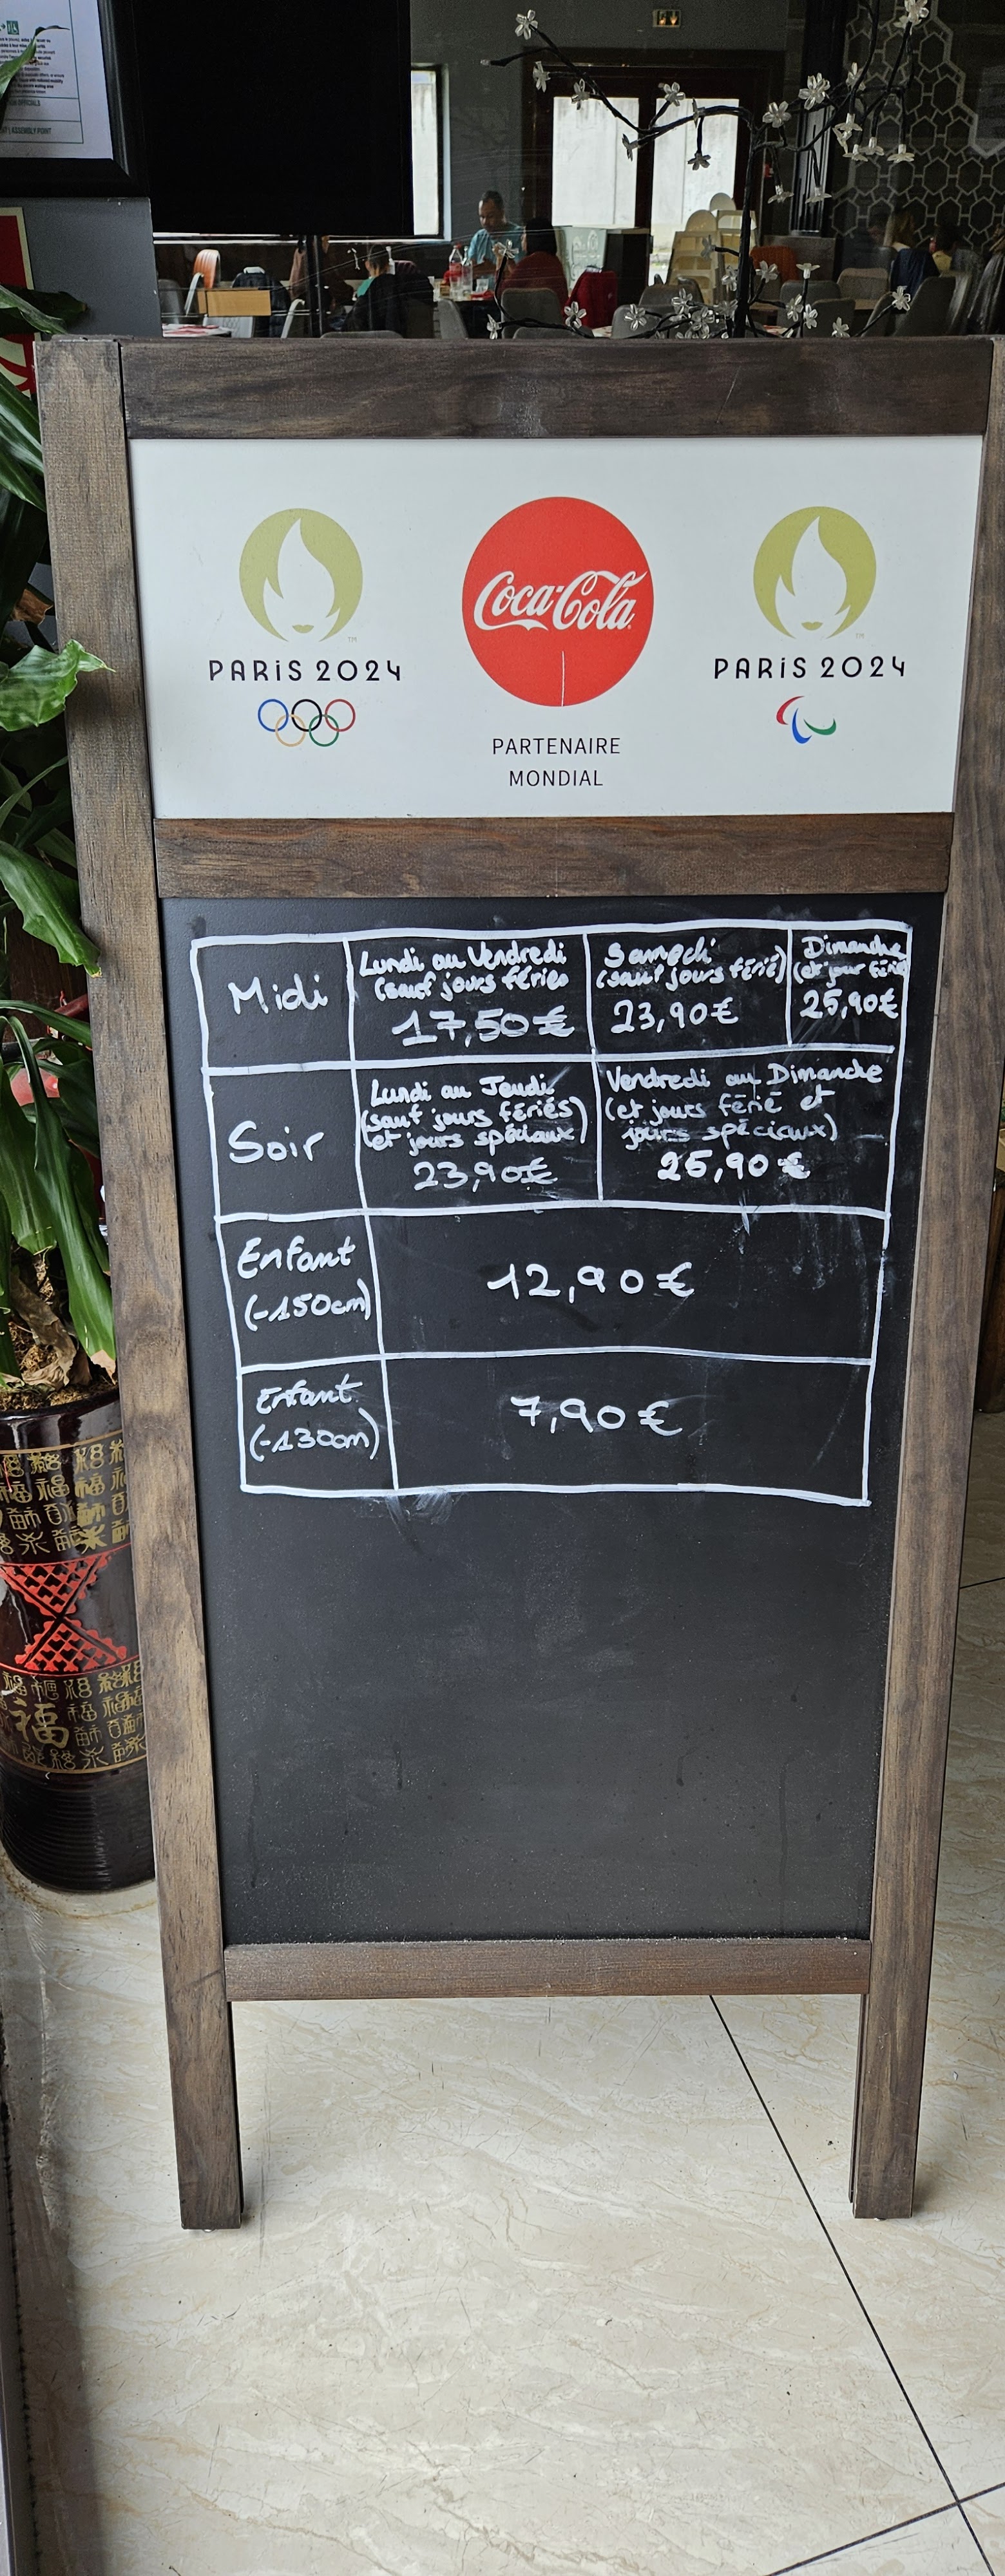 OFFICIALS
ASSEMBLY POINT
PARIS 2024
Coca-Cola
PARTENAIRE
MONDIAL
PARIS 2024
Midi
Lundi au Vendredi
(sauf jours fériés
17,50€
Samedi
(sauf jours férié)
23,90€
Dimanche
(et jour férié
25,90€
Soir
Lundi au Jeudi
(sauf jours fériés)
et jours spéciaux)
23,90€
Vendredi au Dimanche
(et jours férié et
jours spéciaux)
25,90€
Enfant
(-150cm)
12,90€
Enfant
(-130cm)
7,90€
福